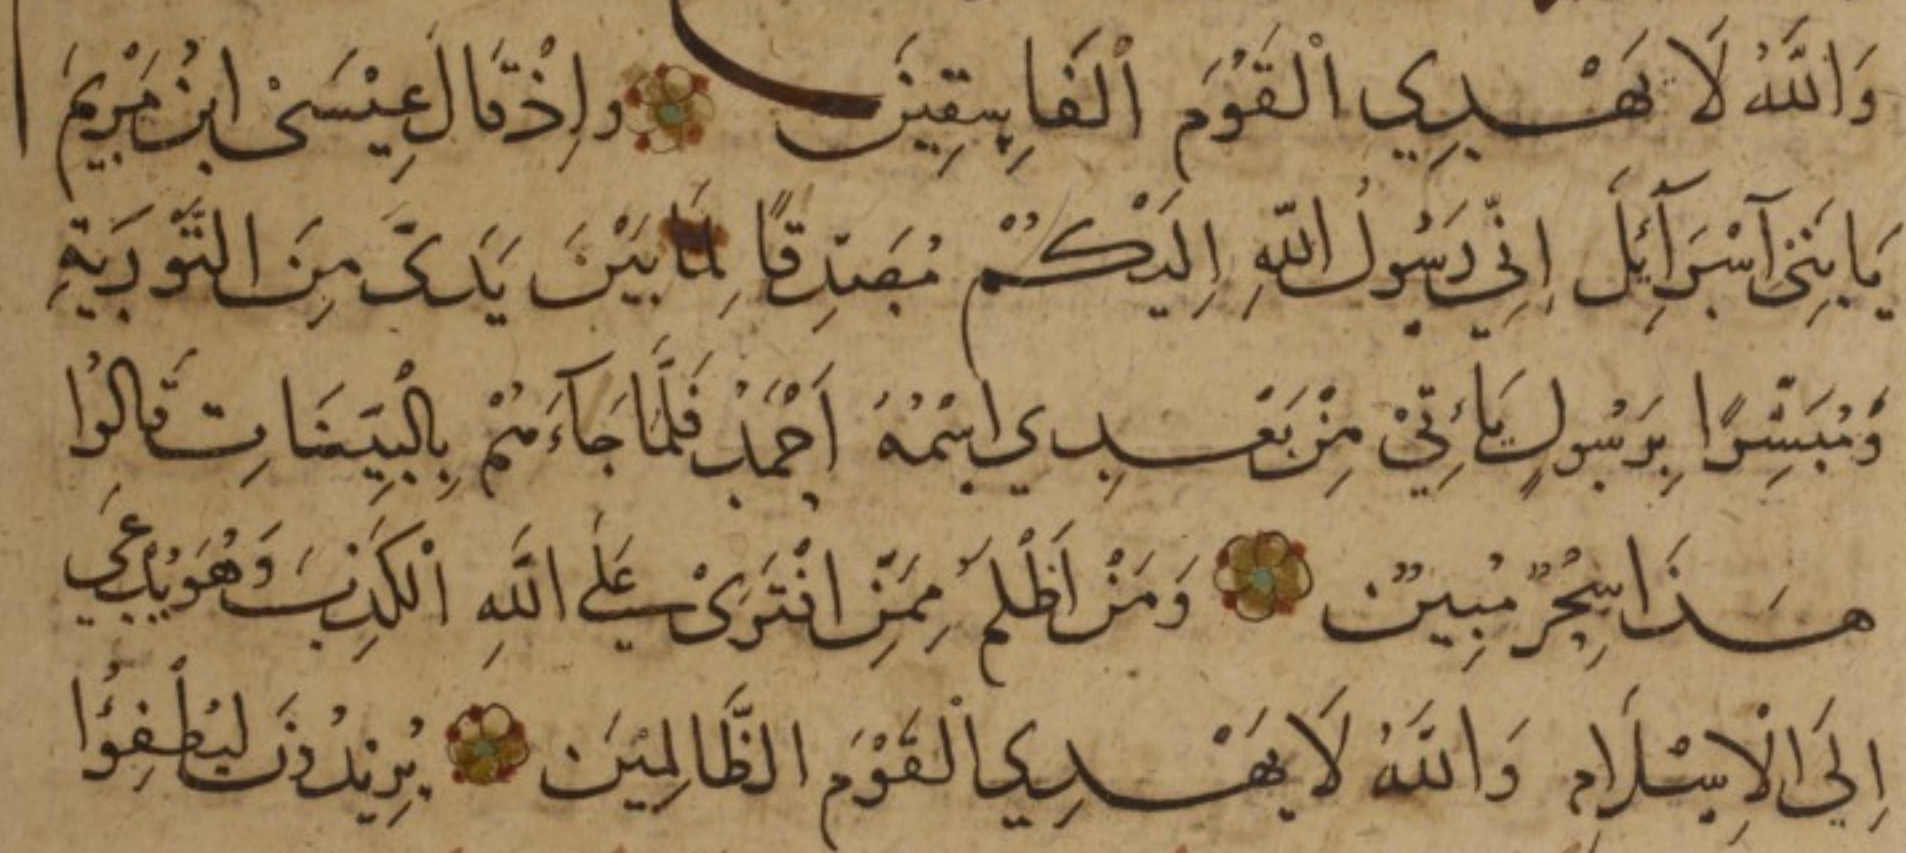 وَاللَّهُ لَا يَهْدِي الْقَوْمَ الْفَاسِقِينَ وَاِذْ قَالَ عِيْسَىْ ابْنُ مَرْيَمَ
يَا بَنِىْ آسْرَآئِلَ اِنِّي رَسُولُ اللّٰهِ اِلَيْكُمْ مُصَدِّقًا لِمَا بَيْنَ يَدَىَّ مِنَ التَّوْرَيةِ
وَمُبَشِّرًا بِرَسُولٍ يَأْتِيْ مِنْ بَعْدِي اسْمُهُ اَحْمَدُ فَلَمَّا جَآءَهُمْ بِالْبَيِّنَاتِ قَالُوْا
هَذَا سِحْرٌ مُبِيْنٌ وَمَنْ اَظْلَمُ مِمَّنِ افْتَرَىْ عَلَى اللَّهِ الْكَذِبَ وَهُوَ يُدْعَى
اِلَى الْاِسْلَامِ وَاللَّهُ لَا يَهْدِي الْقَوْمَ الظَّالِمِيْنَ يُرِيْدُونَ لِيُطْفِؤُا